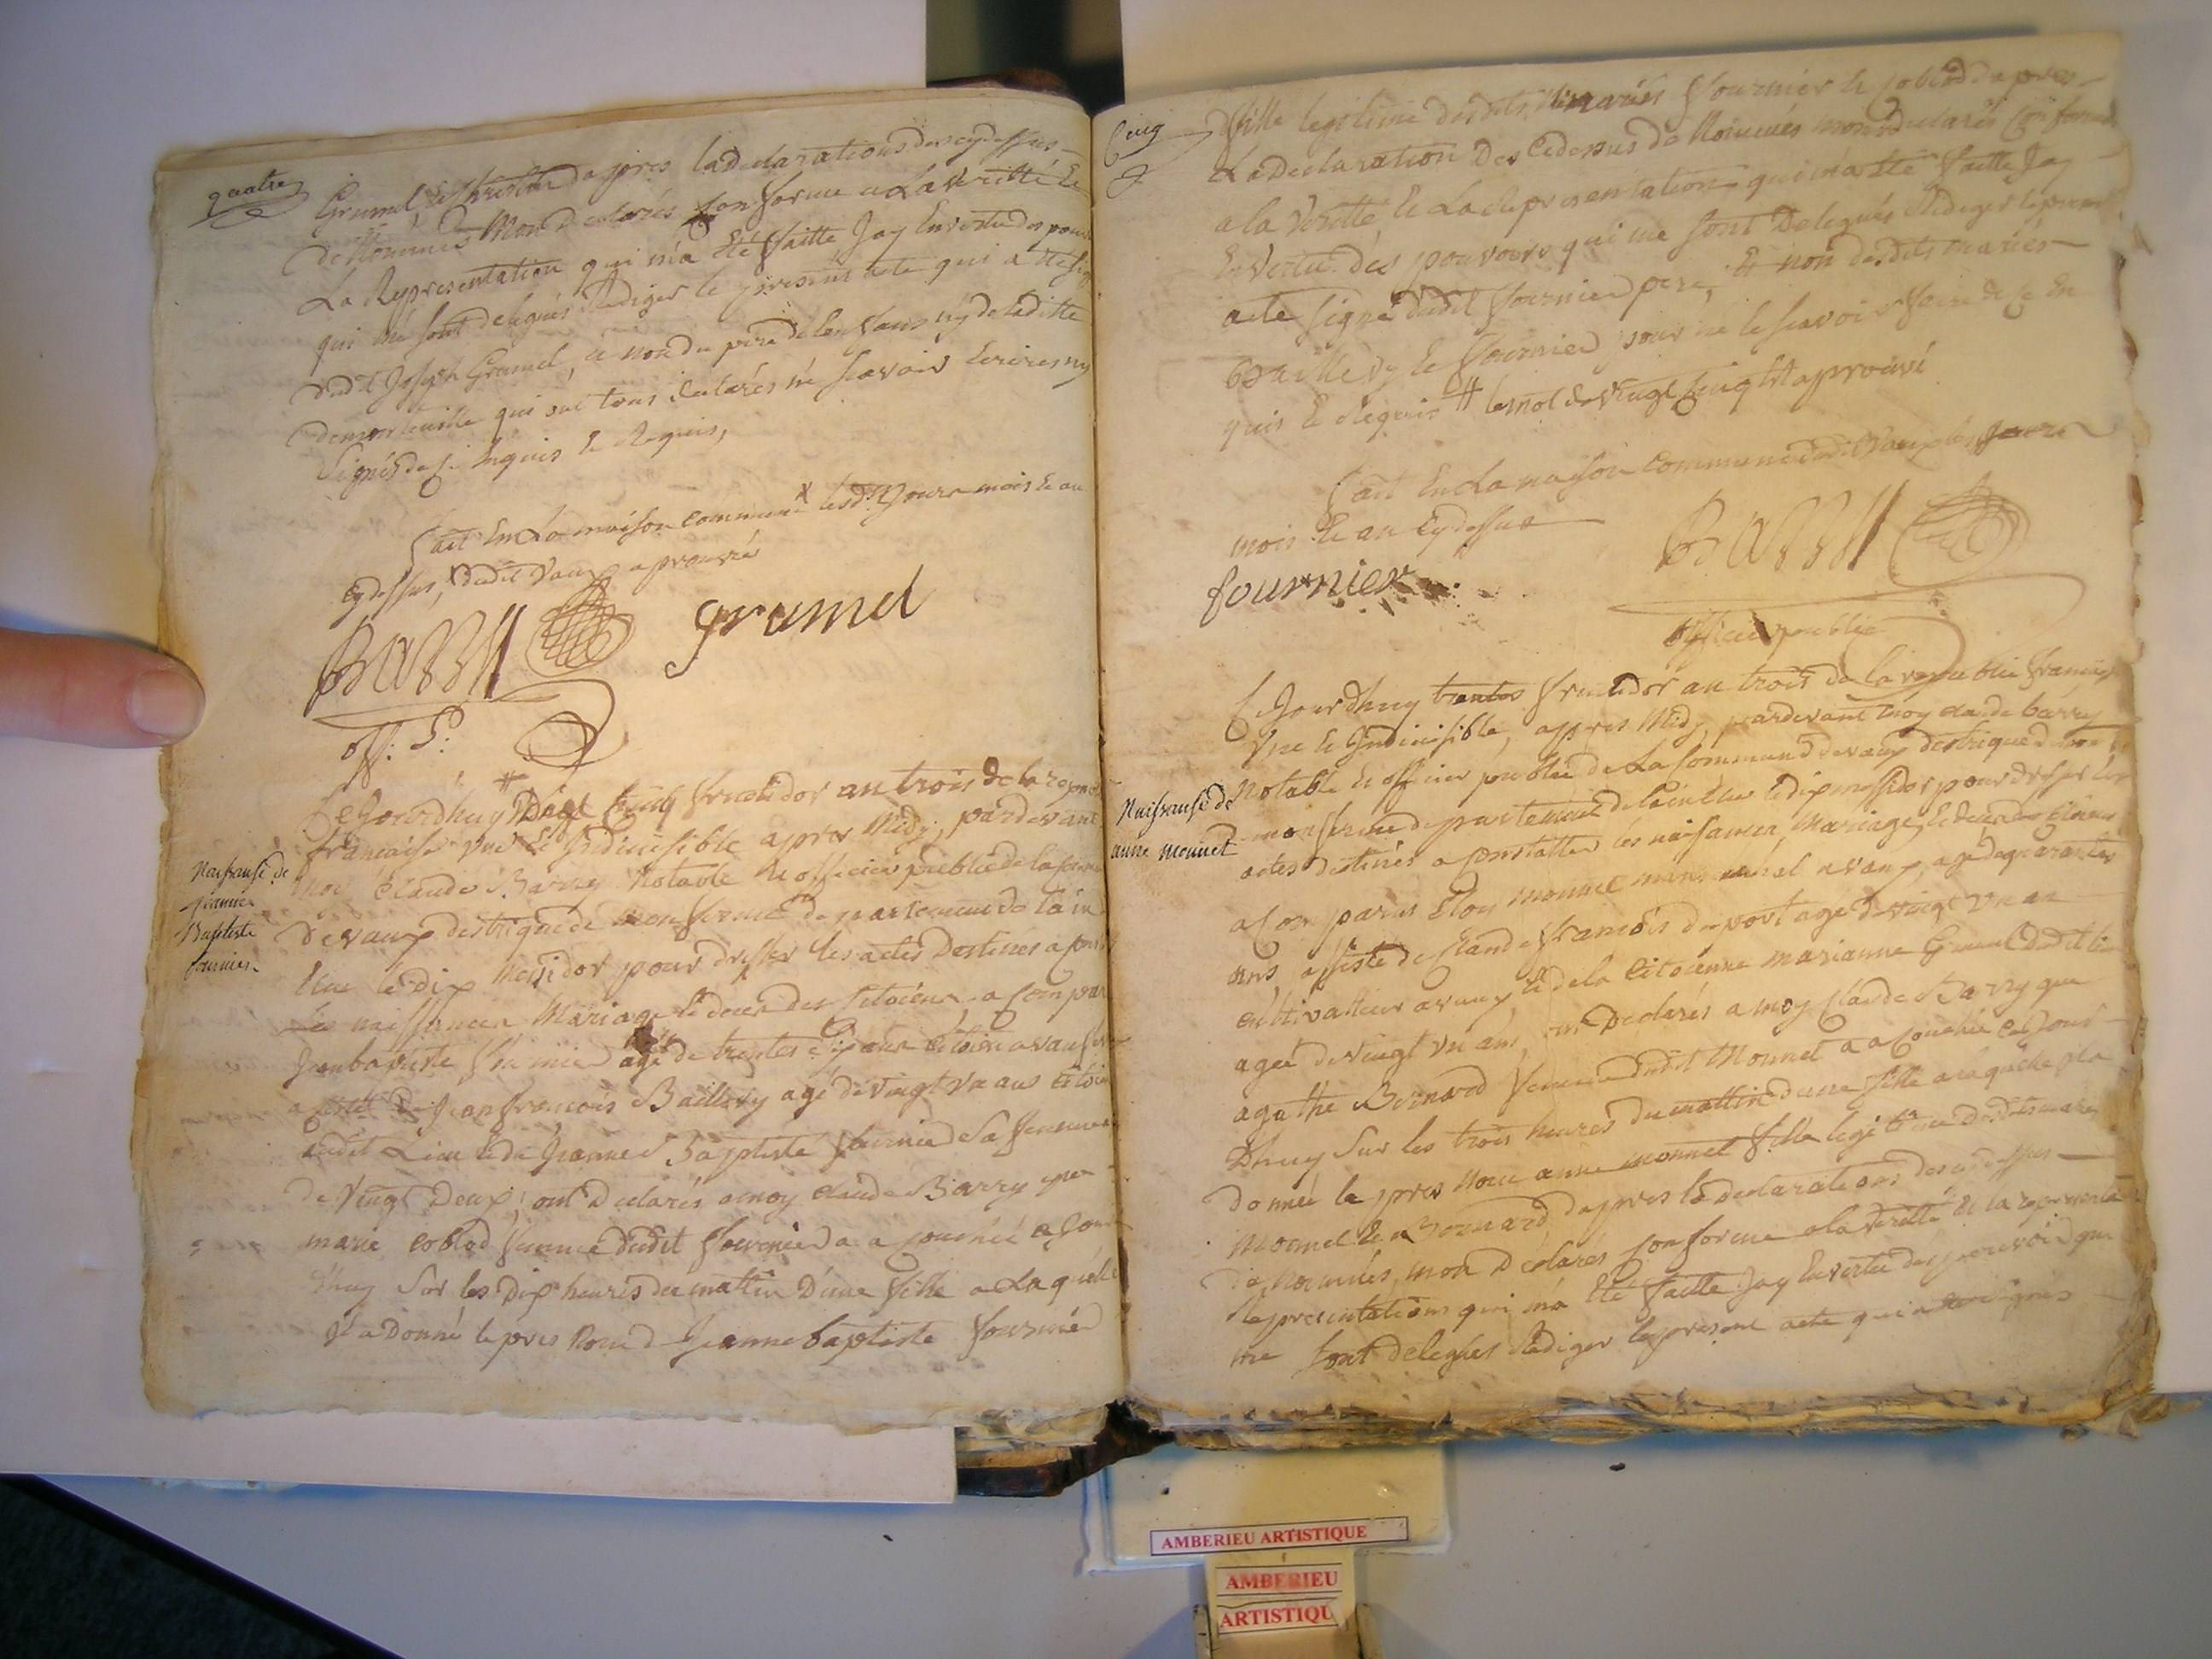 quatre
Grumel, d'apres la declarations des cydessus
de Nommés Mon declarés Conforme a La Veritté Et
La Representation qui m'a Eté faitte Jay En vertu des pouv
qui me sont delegués Rediger le present acte qui a
dudt Joseph Grumel, et non du pere de lenfans ny de laditte
demoiselle qui ont tous declarés ne scavoir Ecrires ny
Signer de ce Enquis Et Requis,
fait En La maison commune X les dt Jours mois Et an
Cydessus, X dudit Vaux aprouvé
Barry grumel
off. P.
Naissance de
Jeanne
Baptiste
fournier
Cejourdhuy # Vingt Cinq fructidor an trois de la repu
francaise une Et Indivisible apres Midy, pardevant
Moi Claude Barry Notable Et officier public de la
de vaux destrique de Monferme departement de lain
Elue le dix Messidor pour dresser les actes Destinés a
Les naissances Mariage Et deces des Citoiens, a Compar
Jeanbaptiste fournier agé de trentes ans Citoien a vaux
assisté de Jean francois Bailley agé de vingt Un ans
dudit Lieu Et de Jeanne Baptiste fournier Sa
de Vingt Deux, ont Declarés a moy claude Barry que
marie coblod femme dudit fournier a acouchée ce Jour
dhuy Sur les Dix heures du mattin D'une fille a Laquelle
Il a Donné le pres Nom d Jeanne baptiste fournier
Cinq
fille legitime desdits Mariés fournier Et coblod dapres
La Declaration des Cidessus de Nommés mon declarés Conforme
a la Veritté, Et La Representation qui ma Eté faitte Jay
En Vertu des pouvoirs qui me sont Delegués Rediger le present
acte signé dudit fournier pere, Et non desdits mariés
Bailley Et fournier pour ne le scavoir faire de ce En
quis Et Requis # le mot de Vingt Cinq Est aprouvé
fait En La maison Commune dudit Vaux les Jours
mois Et an Cydessus
fournier Barry
officier public
Naissance de
anne monnet
Ce Jourdhuy trentes fructidor an trois de la republic francais
Une Et Indivisible, appres Midy, pardevant moy claude barry
Notable Et officier public de La Commune de vaux destrique de
monferme departement de lain Elue le dix messidor pour dresser les
actes destinés a Constatter les naissances, Mariages Et deces des Citoiens
a Comparus Eloy monnet a vaux, agé de quarantes
ans assisté de Claude francois dupont agé de vingt un an
cultivatteur a vaux, Et de la Citoienne marianne Grumel dudit lieu
agée de vingt un ans, ont Declarés a moy Claude Barry que
agathe Bernard femme dudit Monnet a acouchée ce Jour
Dhuy Sur les trois heures du mattin d'une fille a laquelle Il a
donnée le pres Nom anne monnet fille legitime desdits mariés
Monnet Et Bernard dapres la declarations des cydessus
de Nommés, mon Déclarés Conforme a la Veritté Et la representa
Representations qui m'a Eté faitte Jay En vertu des pouvoir qui
me sont delegués Rediger le present acte qui
AMBERIEU ARTISTIQUE
AMBERIEU
ARTISTIQU